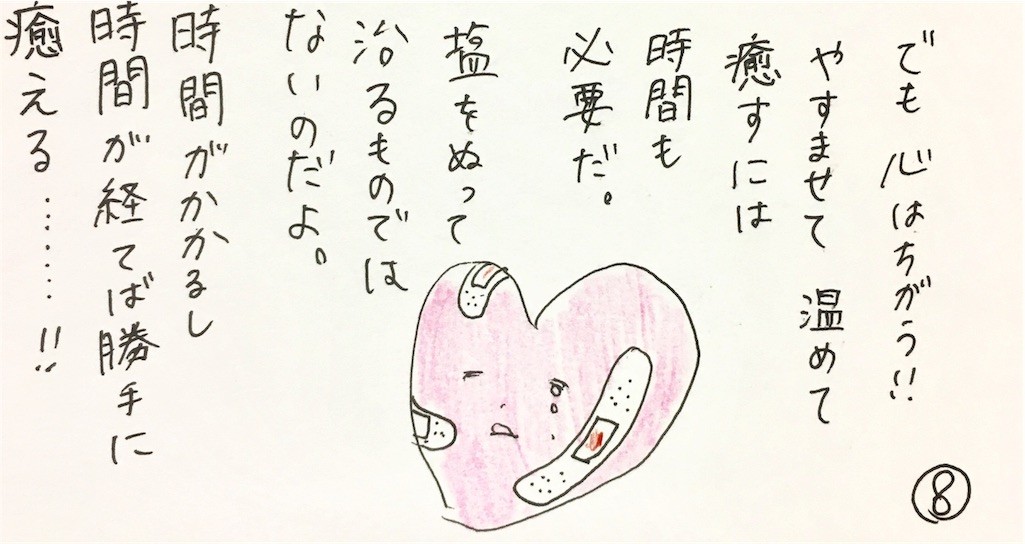 でも 心はちがう!!
やすませて 温めて
癒すには
時間も
必要だ。
塩をぬって
治るものでは
ないのだよ。
時間がかかるし
時間が経てば勝手に
癒える………!!
⑧